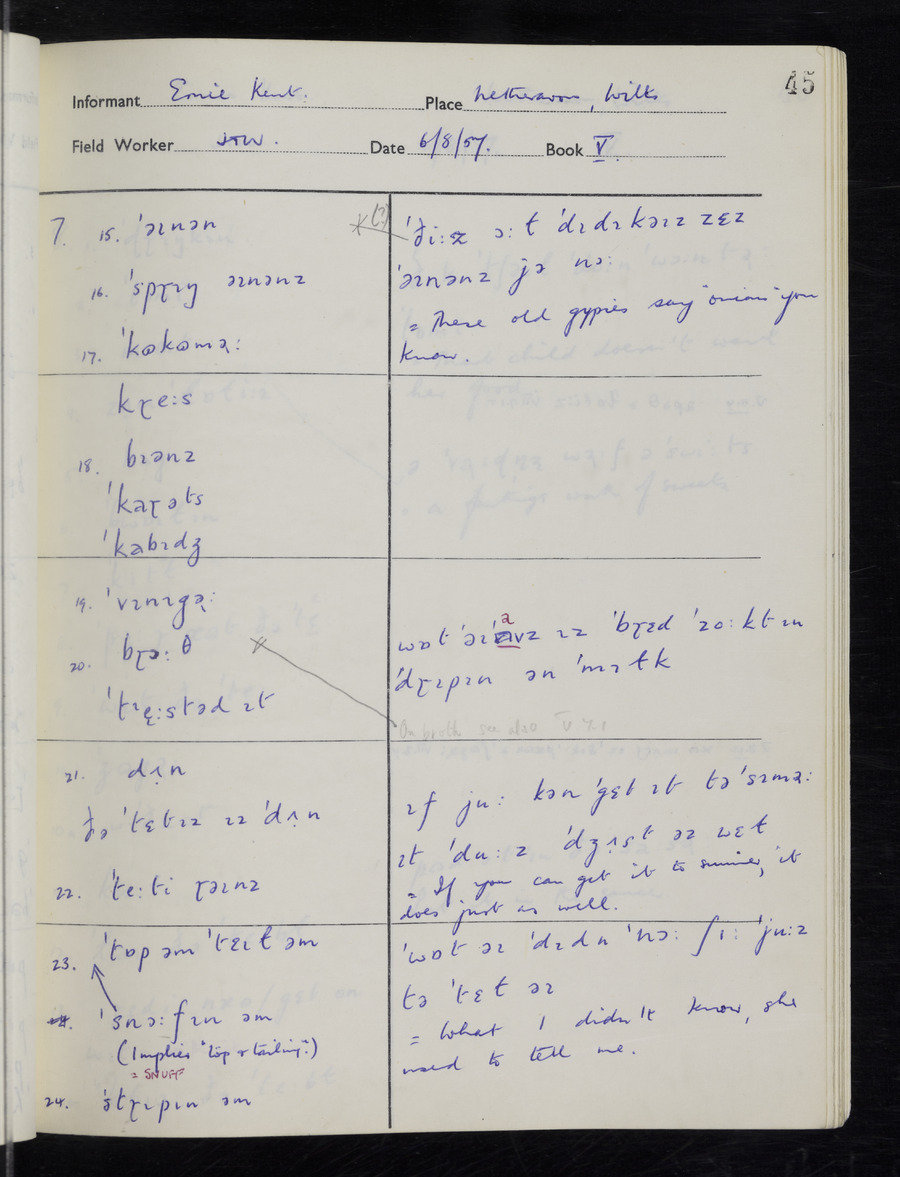 45
Informant Ernie Kent. Place Netheravon, Wilts
Field Worker JTW. Date 6/8/57. Book V.
7. 15. ˈəɪnən
16. ˈspɽɪŋ əɪnənz
17.
kɽe:s
18. bɪənz
ˈkaɽəts
ˈkabɪdʒ
19. ˈvɪnɪgə˞:
20. bɽɔ:θ
ɪt
21. dʌ̣n
ðə ˈtɛtɪz ɪz ˈdʌ̣n
22. ˈte:ti ɽəɪnz
23. ˈtɒp əm ˈtɛɪt əm
ˈsnɔ:fɪn əm
(Implies "top & tailing".)
= SNUFF
24. ˈstɽɪpɪn əm
* (?)
ˈði:z ɔ:t ˈdɪdɪkəɪz zɛz
ˈəɪnənz jə nɔ:
= These old gypsies say "onions" you
know.
wɒt ɪz ˈbɽɛd ˈzo:kt ɪn
ˈdɽɪpɪn ən ˈmɪtk
On broth see also V 7.1
ɪf ju: kən ˈgɛt ɪt tə ˈsɪmə˞:
ɪt ˈdu:z ˈdʒʌ̣st əz wɛt
= If you can get it to simmer, it
does just as well.
ˈwɒt əɪ ˈdɪdn ˈnɔ: ʃi: ˈju:z
tə ˈtɛt əɪ
= What I didn't know, she
used to tell me.